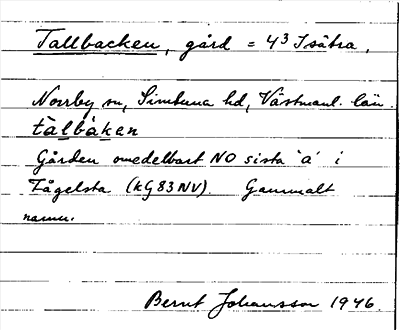 Tallbacken, gård = 4³ Isätra,
Norrby sn, Simtuna hd, Västmanl. län.
tàlbàkan
Gården omedelbart NO sista "a" i
Tågelsta (kG83NV). Gammalt
namn.
Bernt Johansson 1946.